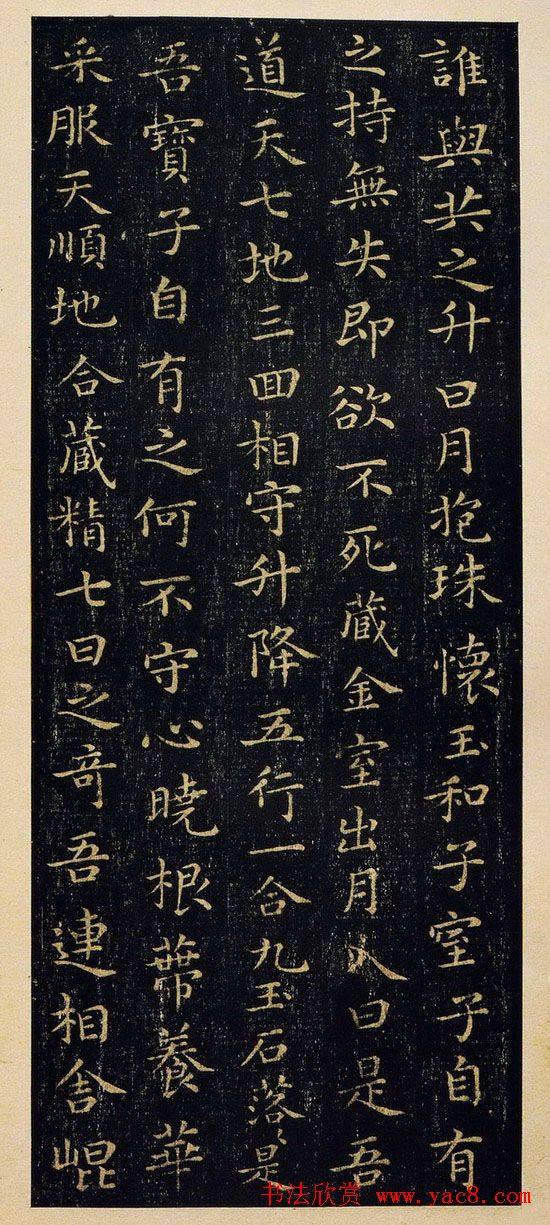 誰與共之升日月抱珠懷玉和子室子自有
之持無失即欲不死藏金室出月入日是吾
道天七地三回相守升降五行一合九玉石落〻是
吾寶子自有之何不守心曉根蔕養華
采服天順地合藏精七日之奇吾連相舎崐
书法欣赏 www.yac8.com